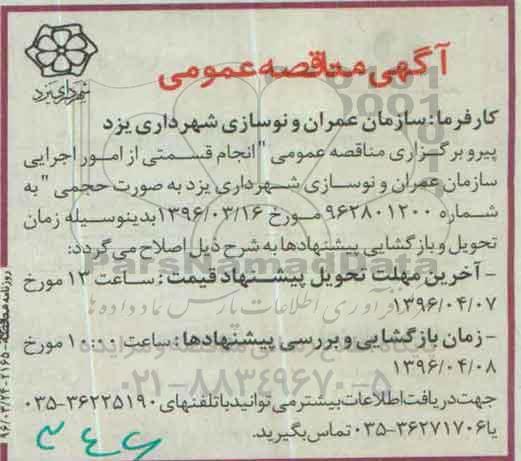 آگهی مناقصه عمومی
شهرداری یزد
کارفرما: سازمان عمران و نوسازی شهرداری یزد
پیرو برگزاری مناقصه عمومی "انجام قسمتی از امور اجرایی
سازمان عمران و نوسازی شهرداری یزد به صورت حجمی" به
شماره ۹۶۲۸۰۱۲۰۰ مورخ ۱۳۹۶/۰۳/۱۶ بدینوسیله زمان
تحویل و بازگشایی پیشنهادها به شرح ذیل اصلاح می گردد:
- آخرین مهلت تحویل پیشنهاد قیمت: ساعت ۱۳ مورخ
۱۳۹۶/۰۴/۰۷
- زمان بازگشایی و بررسی پیشنهادها: ساعت ۱۰:۰۰ مورخ
۱۳۹۶/۰۴/۰۸
جهت دریافت اطلاعات بیشتر می توانید با تلفنهای ۳۶۲۲۵۱۹۰-۰۳۵
یا ۳۶۲۷۱۷۰۶-۰۳۵ تماس بگیرید.
ParsNamadData
فرآوری اطلاعات پارس نماد داده ها
۰۲۱-۸۸۳۴۹۶۷۰-۵